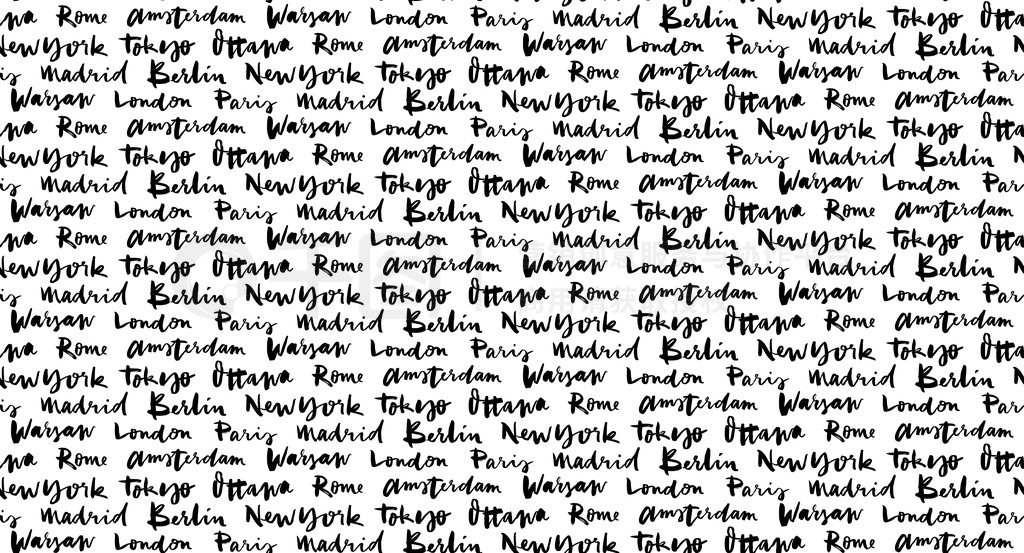 wa Rome amsterdam Warsaw London Paris Madrid Berlin New York Tokyo Otta
New York Tokyo Ottawa Rome amsterdam Warsaw London Paris Madrid Berlin N
is Madrid Berlin New York Tokyo Ottawa Rome amsterdam Warsaw London Par
Warsaw London Paris Madrid Berlin New York Tokyo Ottawa Rome amsterdam
wa Rome amsterdam Warsaw London Paris Madrid Berlin New York Tokyo Otta
New York Tokyo Ottawa Rome amsterdam Warsaw London Paris Madrid Berlin N
is Madrid Berlin New York Tokyo Ottawa Rome amsterdam Warsaw London Par
Warsaw London Paris Madrid Berlin New York Tokyo Ottawa Rome amsterdam
wa Rome amsterdam Warsaw London Paris Madrid Berlin New York Tokyo Otta
New York Tokyo Ottawa Rome amsterdam Warsaw London Paris Madrid Berlin N
is Madrid Berlin New York Tokyo Ottawa Rome amsterdam Warsaw London Par
Warsaw London Paris Madrid Berlin New York Tokyo Ottawa Rome amsterdam
wa Rome amsterdam Warsaw London Paris Madrid Berlin New York Tokyo Otta
New York Tokyo Ottawa Rome amsterdam Warsaw London Paris Madrid Berlin N
is Madrid Berlin New York Tokyo Ottawa Rome amsterdam Warsaw London Par
Warsaw London Paris Madrid Berlin New York Tokyo Ottawa Rome amsterdam
wa Rome amsterdam Warsaw London Paris Madrid Berlin New York Tokyo Otta
New York Tokyo Ottawa Rome amsterdam Warsaw London Paris Madrid Berlin N
is Madrid Berlin New York Tokyo Ottawa Rome amsterdam Warsaw London Par
Warsaw London Paris Madrid Berlin New York Tokyo Ottawa Rome amsterdam
商用请获取授权